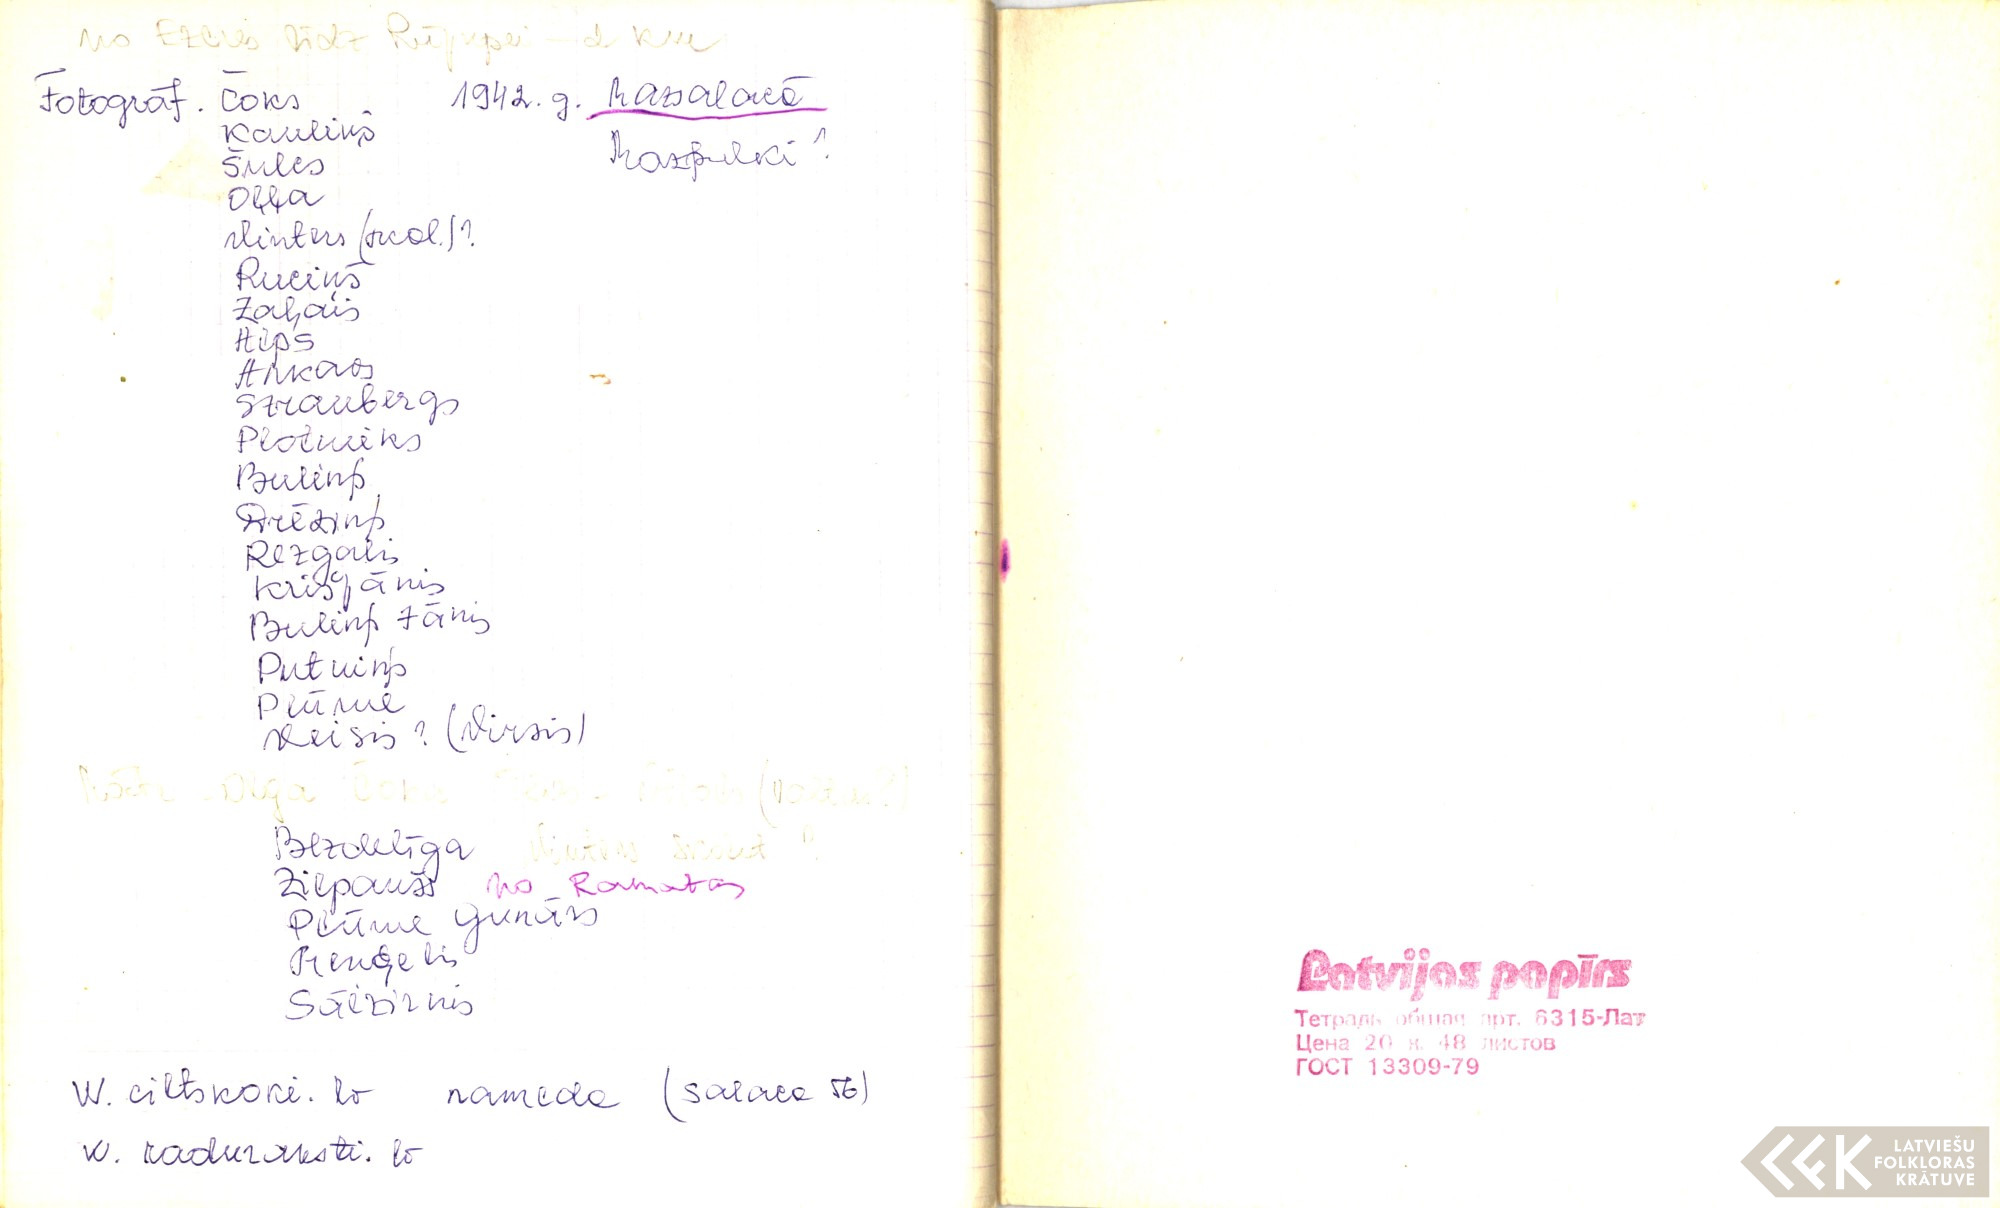 no Ezeres līdz Rūjupei – 2 km
Fotogrāf. Čoks 1942. g. Mazsalacā
Kauliņš Mazpulki ?
Šulcs
Oļļa
Vinters (skol.)?
Ruciņš
Zaļais
Alps
Ankavs
Straubergs
Plotnieks
Buliņš
Drēziņš
Rezgalis
Krišjānis
Buliņš Jānis
Putniņš
Plūme
Veisis ? (Virsis)
Olga
Bezdelīga Vinters ?
Zilpaušs no Ramatas
Plūme Gunārs
Menģelis
Sālzirnis
W. ciltskoki. lv nameda (Salaca 56)
W. raduraksti. lv
Latvijas papīrs
Тетрадь общая арт. 6315-Лат
Цена 20 к. 48 листов
ГОСТ 13309-79
LATVIEŠU
FOLKLORAS
KRĀTUVE